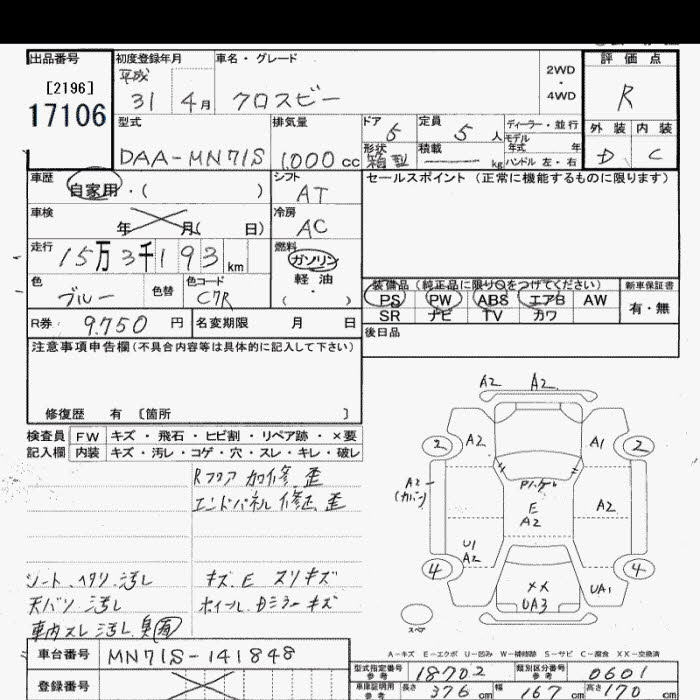 出品番号
[2196]
17106
初度登録年月
平成
31 4月
車名・グレード
クロスビー
2WD
・
4WD
評価点
R
外装 内装
D C
型式
DAA-MN71S
排気量
1,000 cc
ドア 5
定員 5 人
ディーラー・並行
モデル
年式 年
ハンドル 左・右
形状 箱型
積載 kg
車歴
自家用・( )
シフト
AT
セールスポイント (正常に機能するものに限ります)
車検
年 月( 日)
冷房
AC
走行
15万3千193 km
燃料
ガソリン
軽油
・
( )
色
ブルー
色替
色コード
C7R
R券 9,750 円
名変期限 月 日
装備品(純正品に限り○をつけてください)
PS PW ABS エアB AW
SR ナビ TV カワ
新車保証書
有・無
後日品
注意事項申告欄(不具合内容等は具体的に記入して下さい)
修復歴 有 〔箇所 〕
検査員
記入欄
FW キズ・飛石・ヒビ割・リペア跡・×要
内装 キズ・汚レ・コゲ・穴・スレ・キレ・破レ
Rフロア 加修 歪
エンドパネル 修正 歪
シート ヘタリ 汚レ
天バリ 汚レ
車内スレ 汚レ 臭
キズ、E スリキズ
ホイール、Dミラー キズ
A2 A2
2 A2 A1 2
A2
(カバー)
E
A2
A2
U1
A2
4 4
XX
UA3
UA1
スペア
A-キズ E-エクボ U-凹み W-補修跡 S-サビ C-腐食 XX-交換済
車台番号 MN71S-141848
登録番号
型式指定番号 参考 18702
類別区分番号 参考 0601
車庫証明用 参考 長さ 376 cm 幅 167 cm 高さ 170 cm